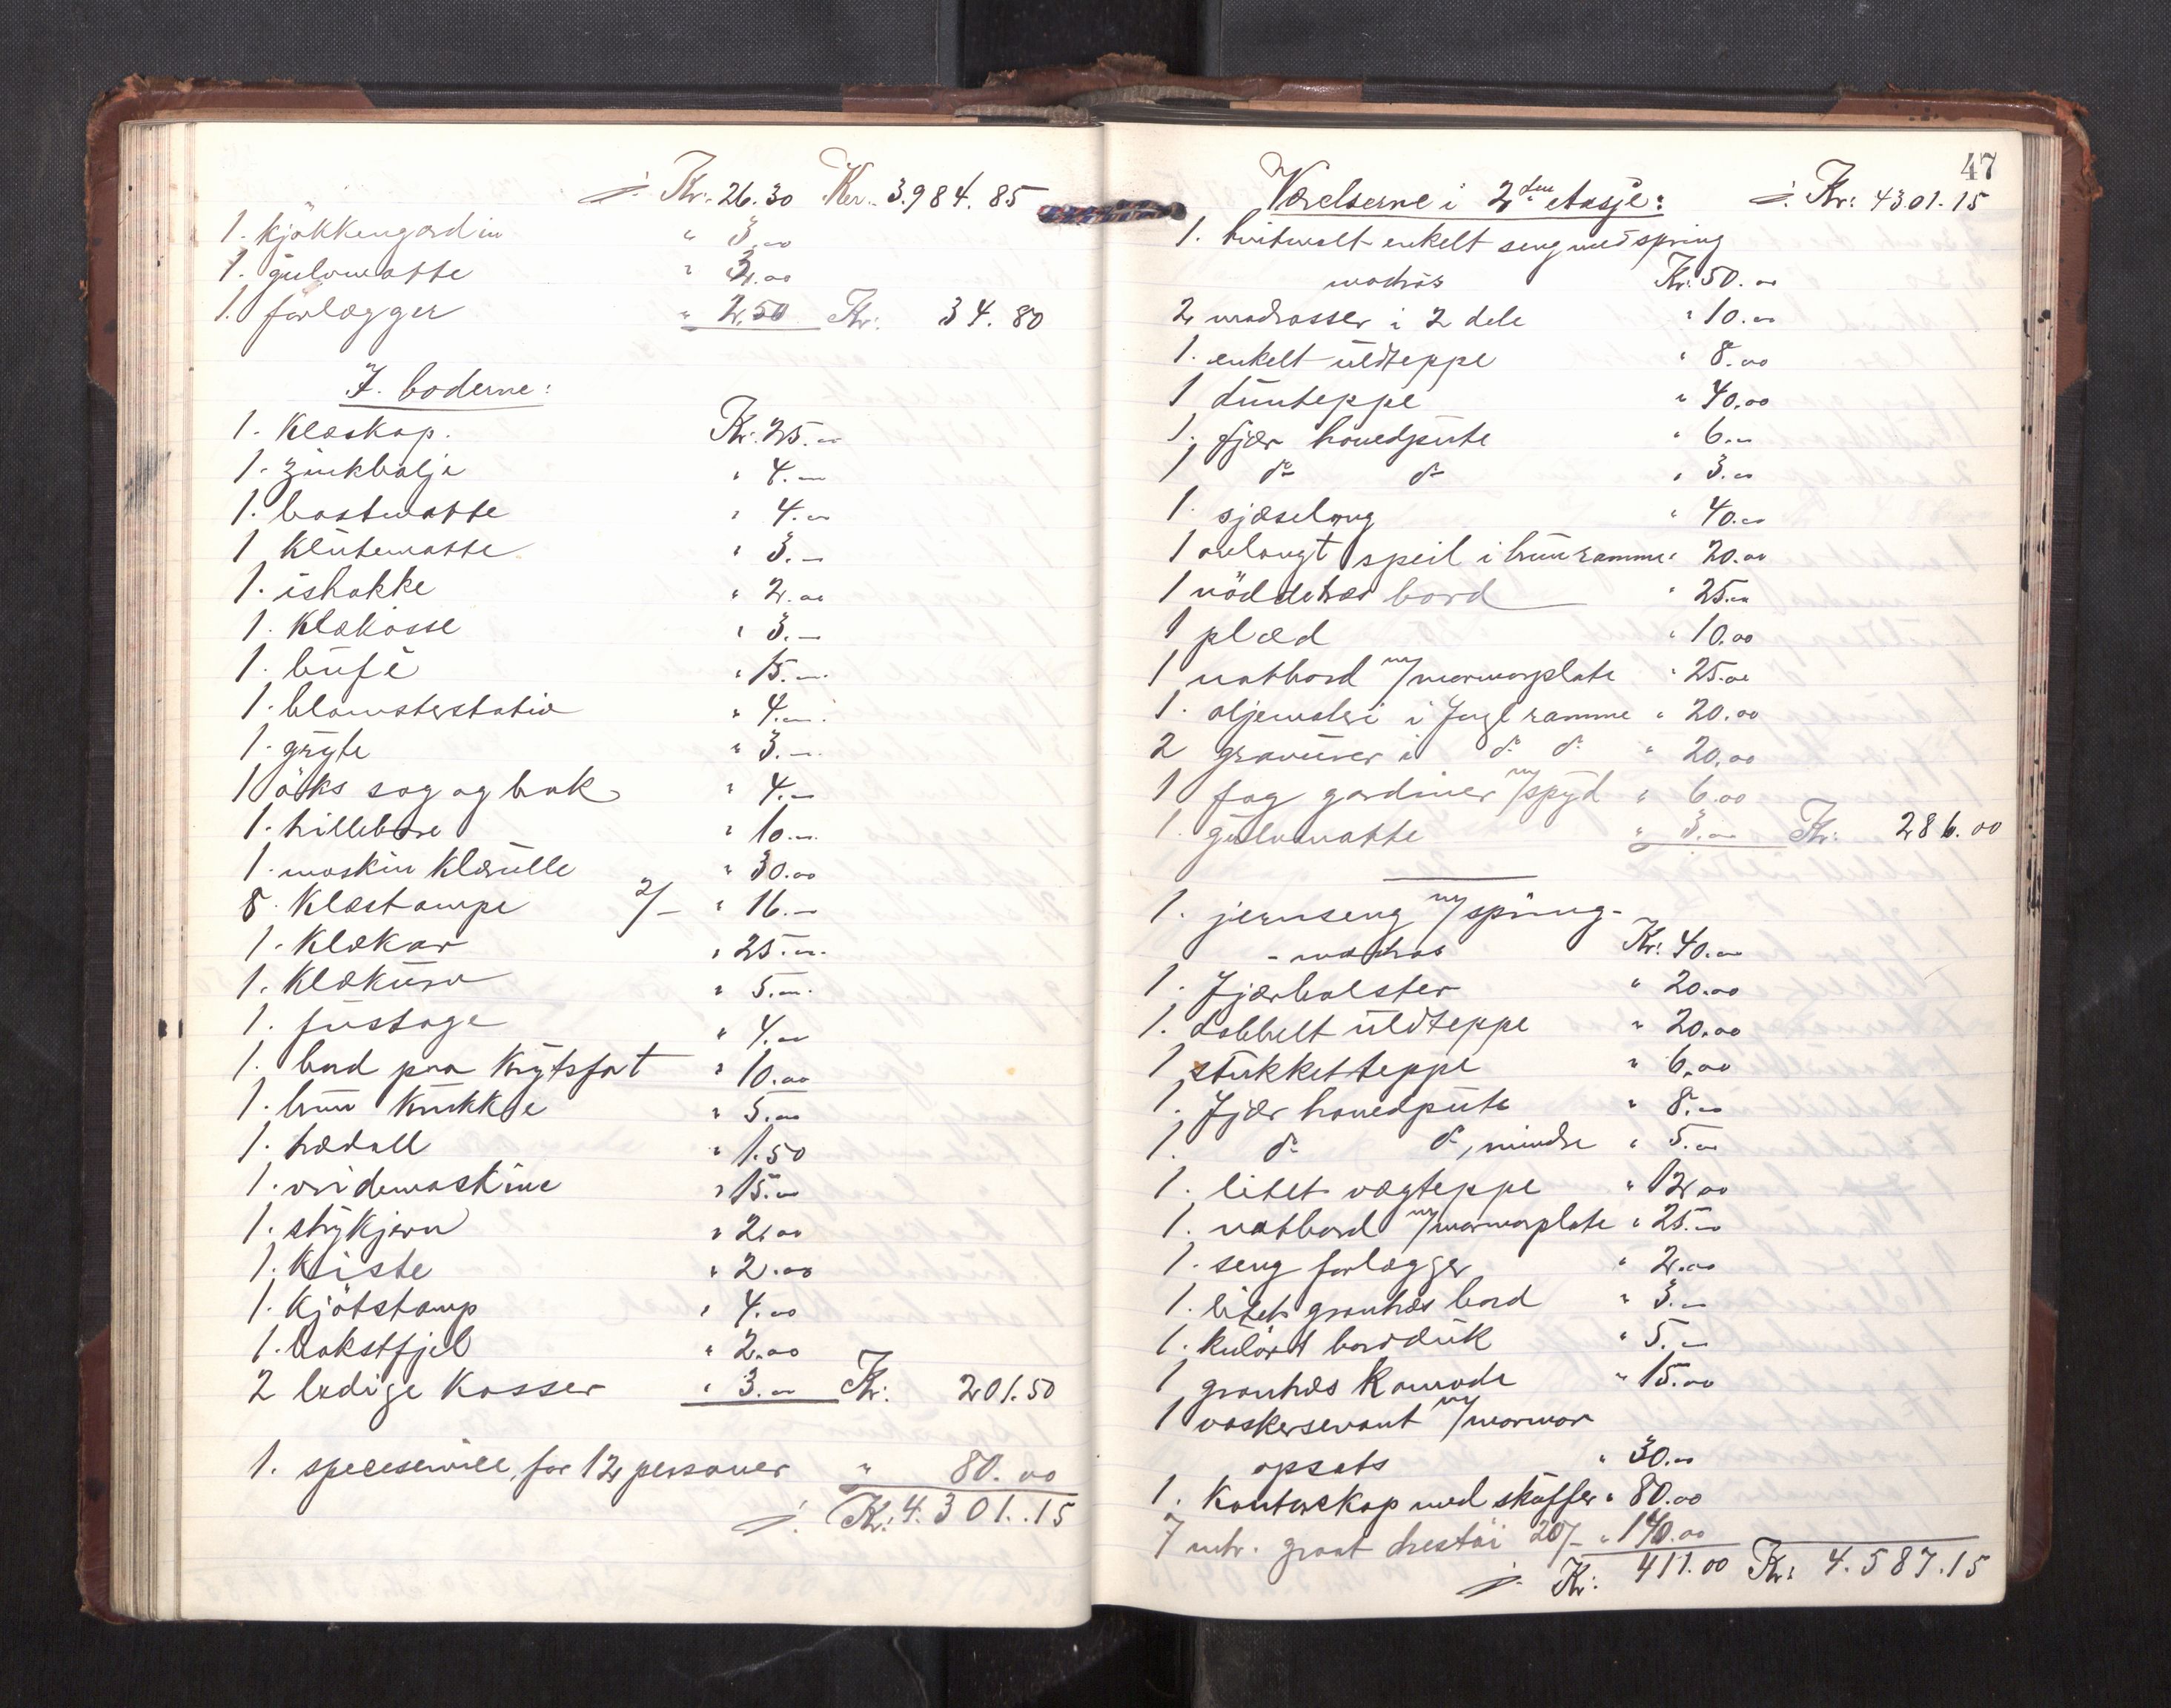 ./. Kr. 26.30 Kr. 3.984.85
1. kjøkkengardin " 3.00
1. gulvmatte " 3.00
1. forlægger " 2.50 Kr: 34.80
I boderne:
1. Klæskap. Kr. 25.00
1. Zinkbalje " 4.00
1. bastmatte " 4.00
1 Klutematte " 3.—
1. ishakke " 2.00
1. Klækasse " 3.—
1. bufé " 15.00
1. blomsterstativ " 4.00
1. gryte " 3.—
1 øks sag og bak " 4.—
1. trillebøre " 10.00
1. maskin Klærulle " 30.00
8 Klæstampe 2/— " 16.—
1. Klækar " 25.00
1. Klækurv " 5.00
1. fustage " 4.00
1. bord paa Krytsfot " 10.00
1. brun Krukke " 5.00
1. trædall " 1.50
1. vridemaskine " 15.00
1. strykjern " 2.00
1. Kiste " 2.00
1. Kjøtstamp " 4.00
1. bakstfjel " 2.00
2 ledige Kasser " 3.00 Kr: 201.50
1. speceservice, for 12 personer " 80.00
./. Kr: 4.301.15
47
Værelserne i 2den etasje: ./. Kr: 4301.15
1. hvitmalt enkelt seng med spring
madras Kr. 50.00
2 madrasser i 2 dele " 10.00
1. enkelt uldteppe " 8.00
1 dunteppe " 40.00
1. fjær hovedpute " 6.00
1 do do " 3.00
1. sjæselong " 40.00
1 avlangt speil i brun ramme " 20.00
1 nøddetræs bord " 25.00
1 plæd " 10.00
1 natbord m/marmorplate " 25.00
1. oljemaleri i Gugl ramme " 20.00
2 gravurer i do do " 20.00
1 fag gardiner m/spyd " 6.00
1. gulvmatte " 3.00 Kr: 286.00
1. jernseng m/spring-
-madras Kr: 40.00
1. Fjærbolster " 20.00
1. dobbelt uldteppe " 20.00
1 stukketteppe " 6.00
1. Fjær hovedpute " 8.00
1. do do, mindre " 5.00
1. litet vægteppe " 12.00
1. natbord m/marmorplate " 25.00
1. seng forlægger " 2.00
1. litet grantræs bord " 3.00
1. kulørt bordduk " 5.00
1 grantræs Komode " 15.00
1 vaskerservant m/marmor
opsats " 30.00
1. Kontorskap med skuffer " 80.00
7 mtr. graat drestøi 20/— " 140.00
./. Kr: 411.00 Kr: 4.587.15